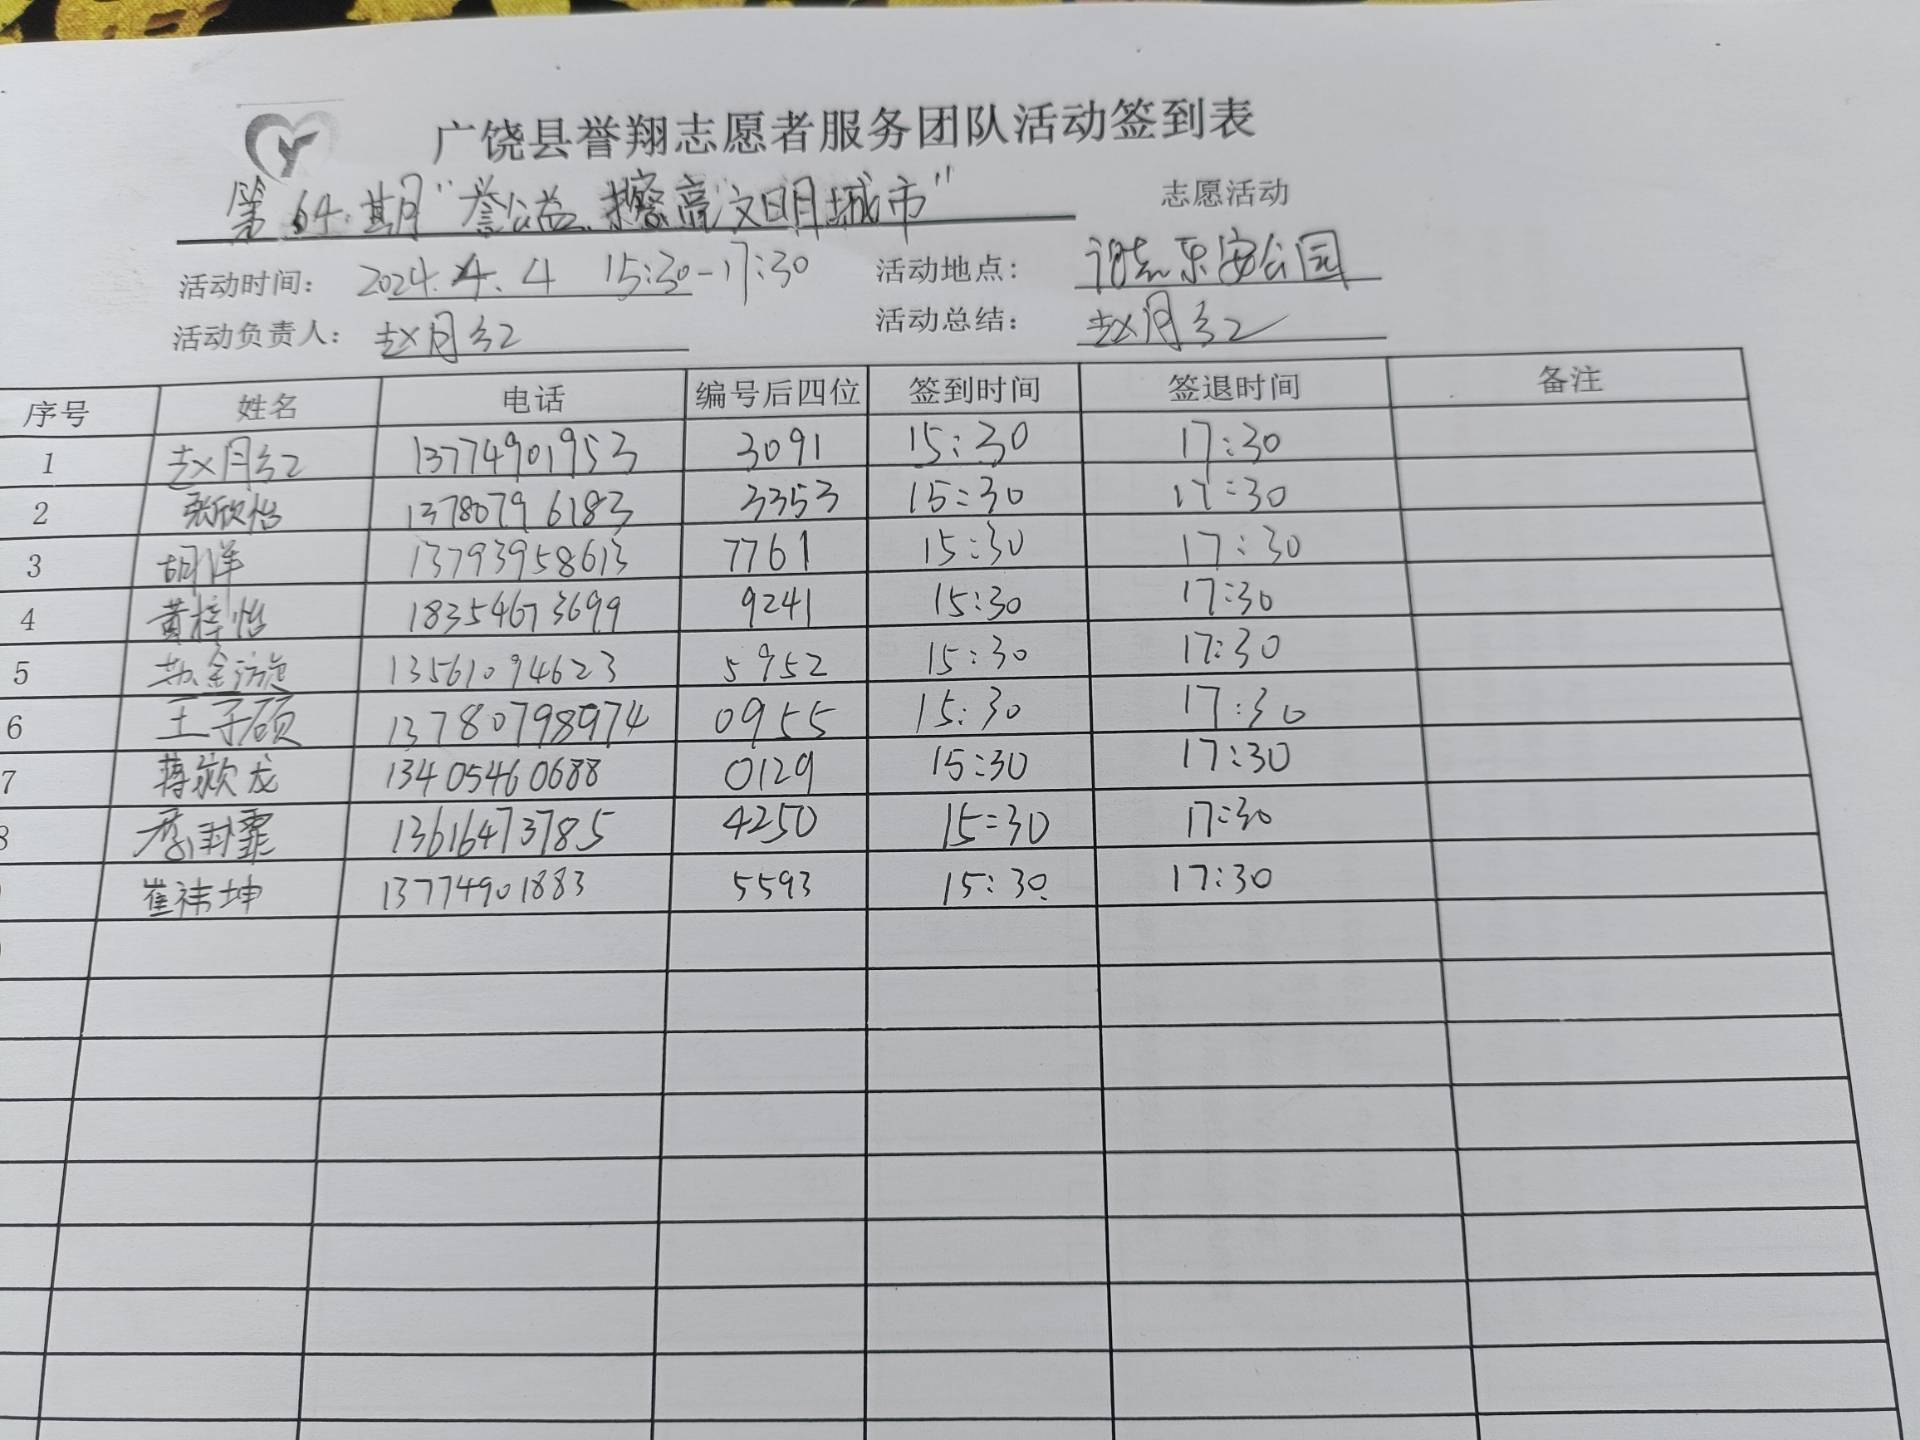 广饶县誉翔志愿者服务团队活动签到表
第 64 期"誉公益 擦亮文明城市" 志愿活动
活动时间： 2024.4.4 15:30-17:30 活动地点： 乐安公园
活动负责人： 赵月红 活动总结： 赵月红
序号 姓名 电话 编号后四位 签到时间 签退时间 备注
1 赵月红 13774901953 3091 15:30 17:30
2 张欣怡 13780796183 3353 15:30 17:30
3 胡洋 13793958613 7761 15:30 17:30
4 黄梓怡 18354673699 9241 15:30 17:30
5 13561094623 5952 15:30 17:30
6 王子硕 13780798974 0955 15:30 17:30
7 蒋欽龙 13405460688 0129 15:30 17:30
8 13616473785 4250 15:30 17:30
崔祎坤 13774901883 5593 15:30 17:30